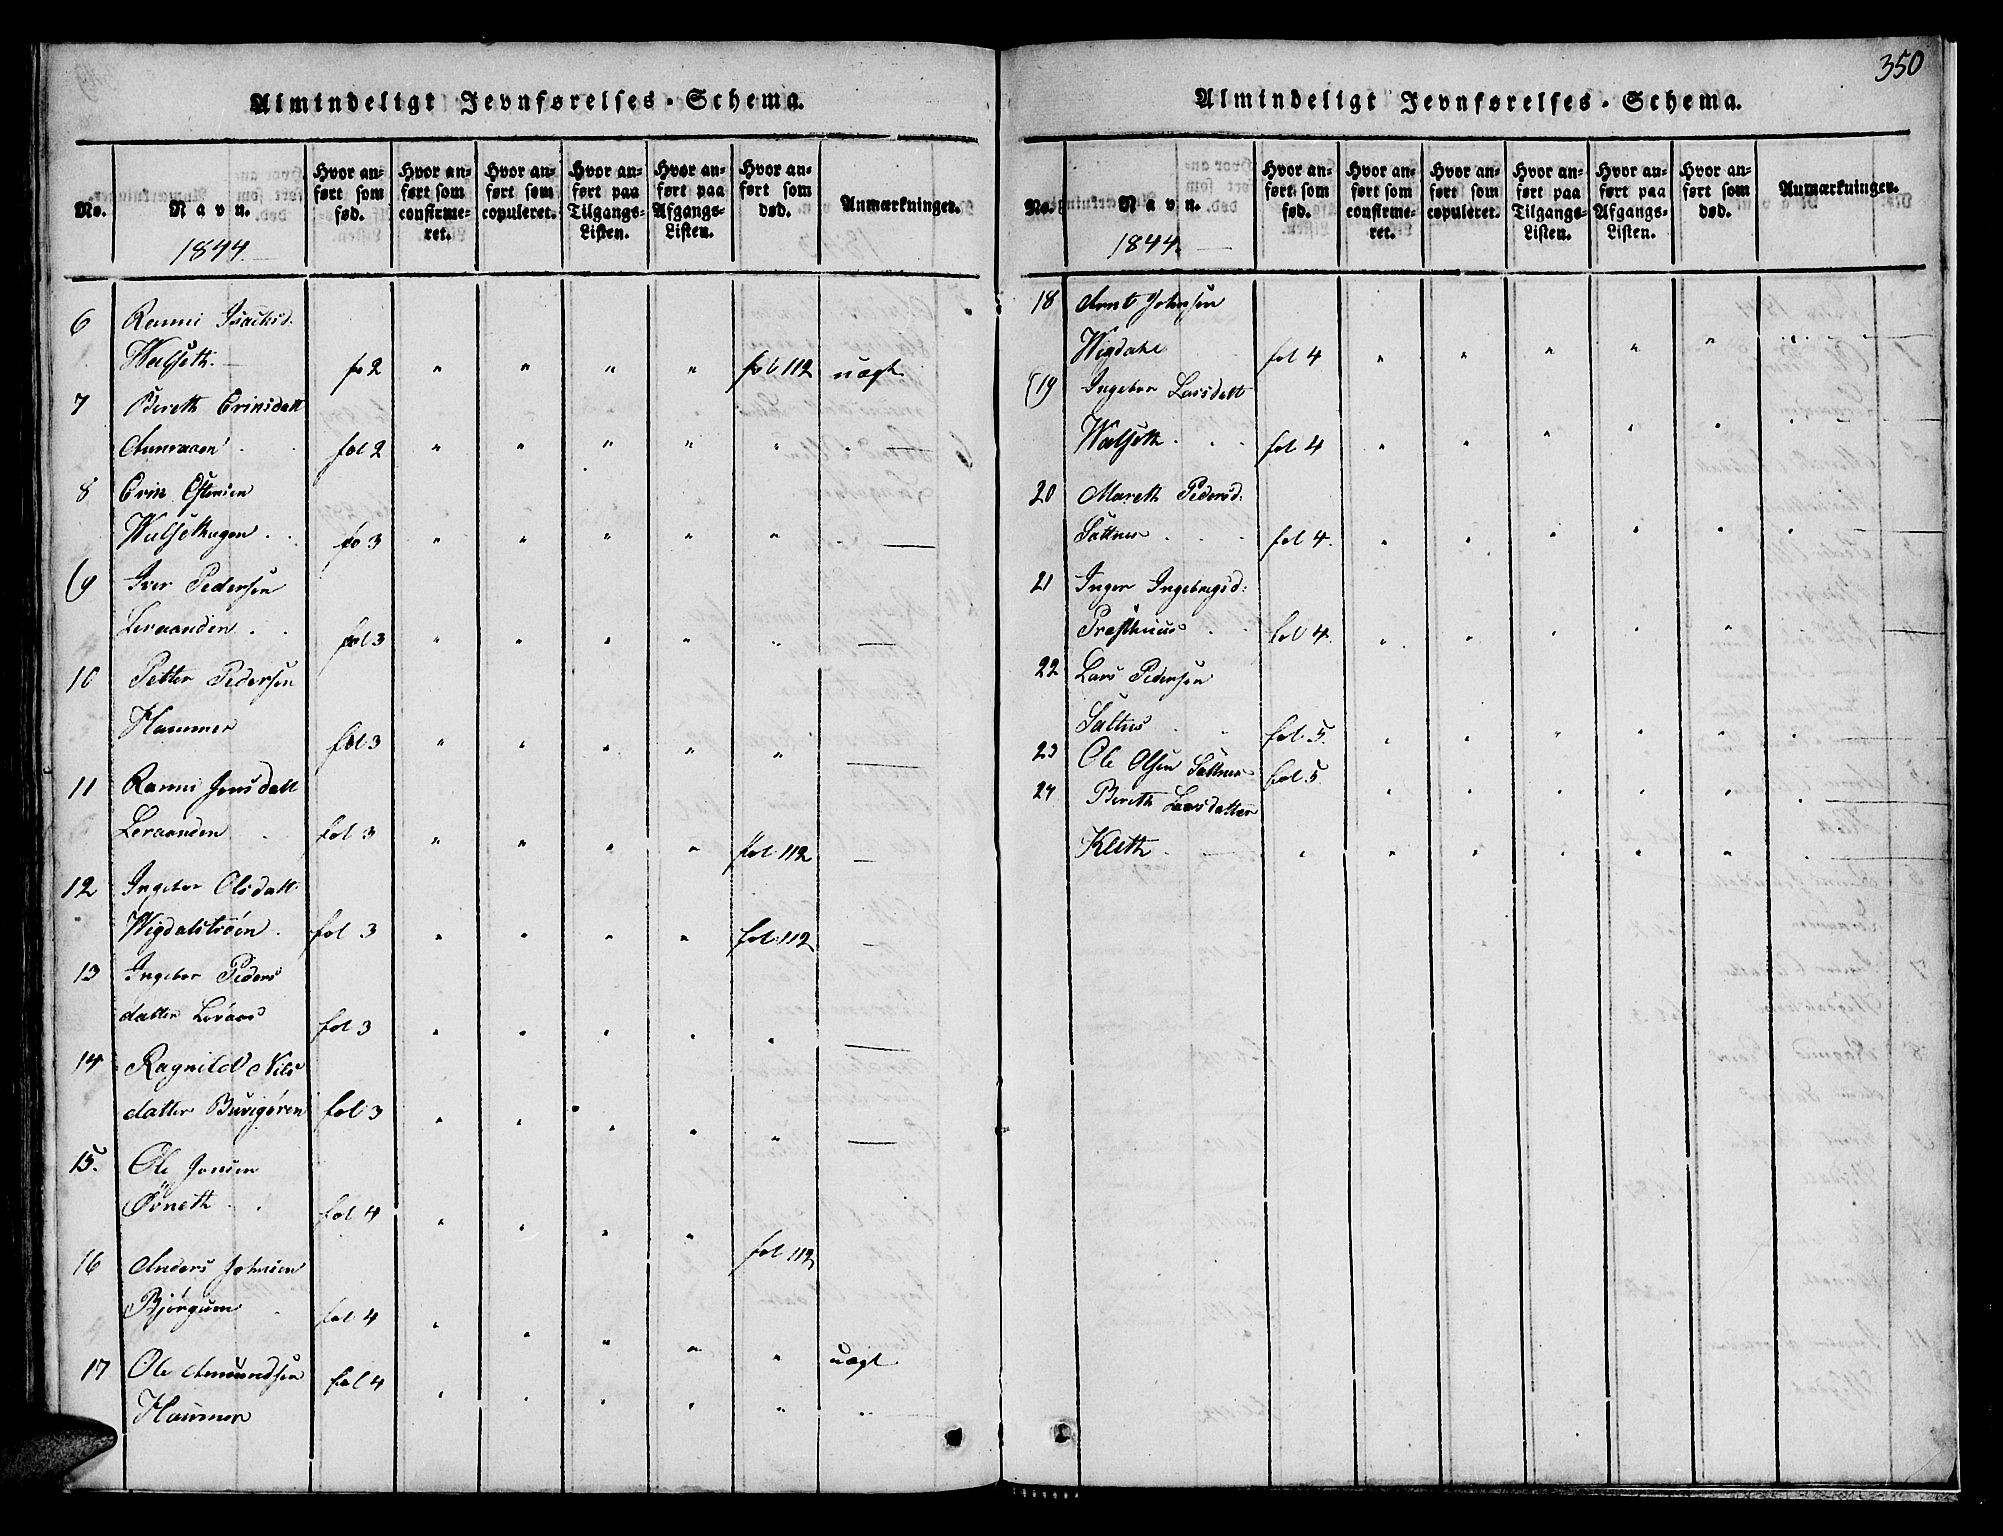 350
Almindeligt Jevnførelses-Schema.
No. Navn. Hvor anført som fød. Hvor anført som confirmeret. Hvor anført som copuleret. Hvor anført paa Tilgangs-Listen. Hvor anført paa Afgangs-Listen. Hvor anført som død. Anmærkninger.
1844.
6 Ranni Isacksd.
Walseth. fo 2 " " " " fol 112 uægt
7 Bereth Erinsdatt
fol 2 " " " " "
8 Erik Estensen
Walsethagen . . fo 3 " " " " " —
(9 Iver Pedersen
Leraanden . . fol 3 " " " " " —
10 Petter Pedersen
Hammer fol 3 " " " " " —
11 Ranni Jonsdatt
Leraanden . fol 3 " " " " fol 112 —
12 Ingebor Olsdatt
Wigdalstrøen . fol 3 " " " " fol 112 —
13 Ingebor Peders
datter Leraas fol 3 " " " " " —
14 Ragnild Nils
datter fol 3 " " " " " —
15. Ole Jonsen
Øvneth . . fol 4 " " " " fol 112
16 Anders Johnsen
Bjørgum . fol 4 " " " " " uægt
17 Ole Amundsen fol 4 " " " " " "
Hammer
Almindeligt Jevnførelses-Schema.
No. Navn. Hvor anført som fød. Hvor anført som confirmeret. Hvor anført som copuleret. Hvor anført paa Tilgangs-Listen. Hvor anført paa Afgangs-Listen. Hvor anført som død. Anmærkninger.
1844.
18 Arnt Johnsen
Wigdahl fol 4 " " " " "
(19 Ingebor Larsdatt
Walseth . . . fol 4 " " " " " "
20 Mareth Pedersd:
Sattnes . . . fol 4. " " " " " "
21 Inger Ingebrigsd:
Præsthuus . . fol 4. " " " " "
22 Lars Pedersen
Saltnes . . fol 5. " " " " " "
23 Ole Olsen Sattnes fol 5 " " " " " "
24 Bereth Larsdatter
Kleth . " " " " " " "